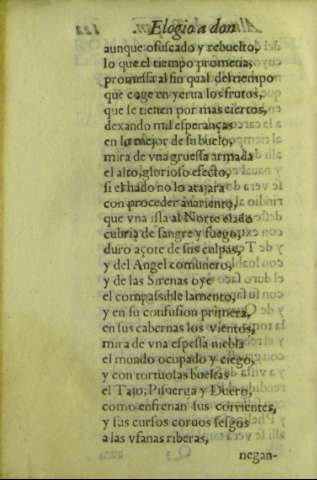 Elogio a don
aunque ofuscado y rebuelto,
lo que el tiempo prometia;
promessa al fin qual del tiempo
que coge en yerua los frutos,
que se tienen por mas ciertos,
dexando mil esperanças
en lo mejor de su buelo,
mira de vna gruessa armada
el alto, glorioso efecto,
si el hado no lo atajara
con proceder auariento,
que vna isla al Norte elado
cubria de sangre y fuego,
duro açote de sus culpas,
y del Angel comunero,
y de las Sirenas oye
el compassible lamento,
y en su confusion primera,
en sus cabernas los vientos,
mira de vna espessa niebla
el mundo ocupado y ciego,
y con tortuosas bueltas
el Tajo, Pisuerga y Duero,
como enfrenan sus corrientes,
y sus cursos coruos sesgos
a las vfanas riberas,
negan-